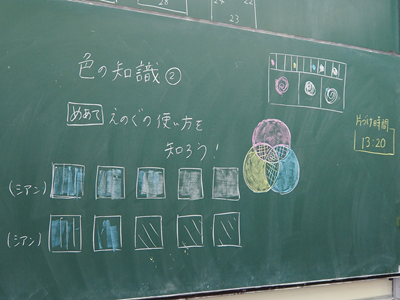 28
24 22
23
色の知識②
めあて えのぐの使い方を
知ろう！
片づけ時間
13:20
(シアン)
(シアン)